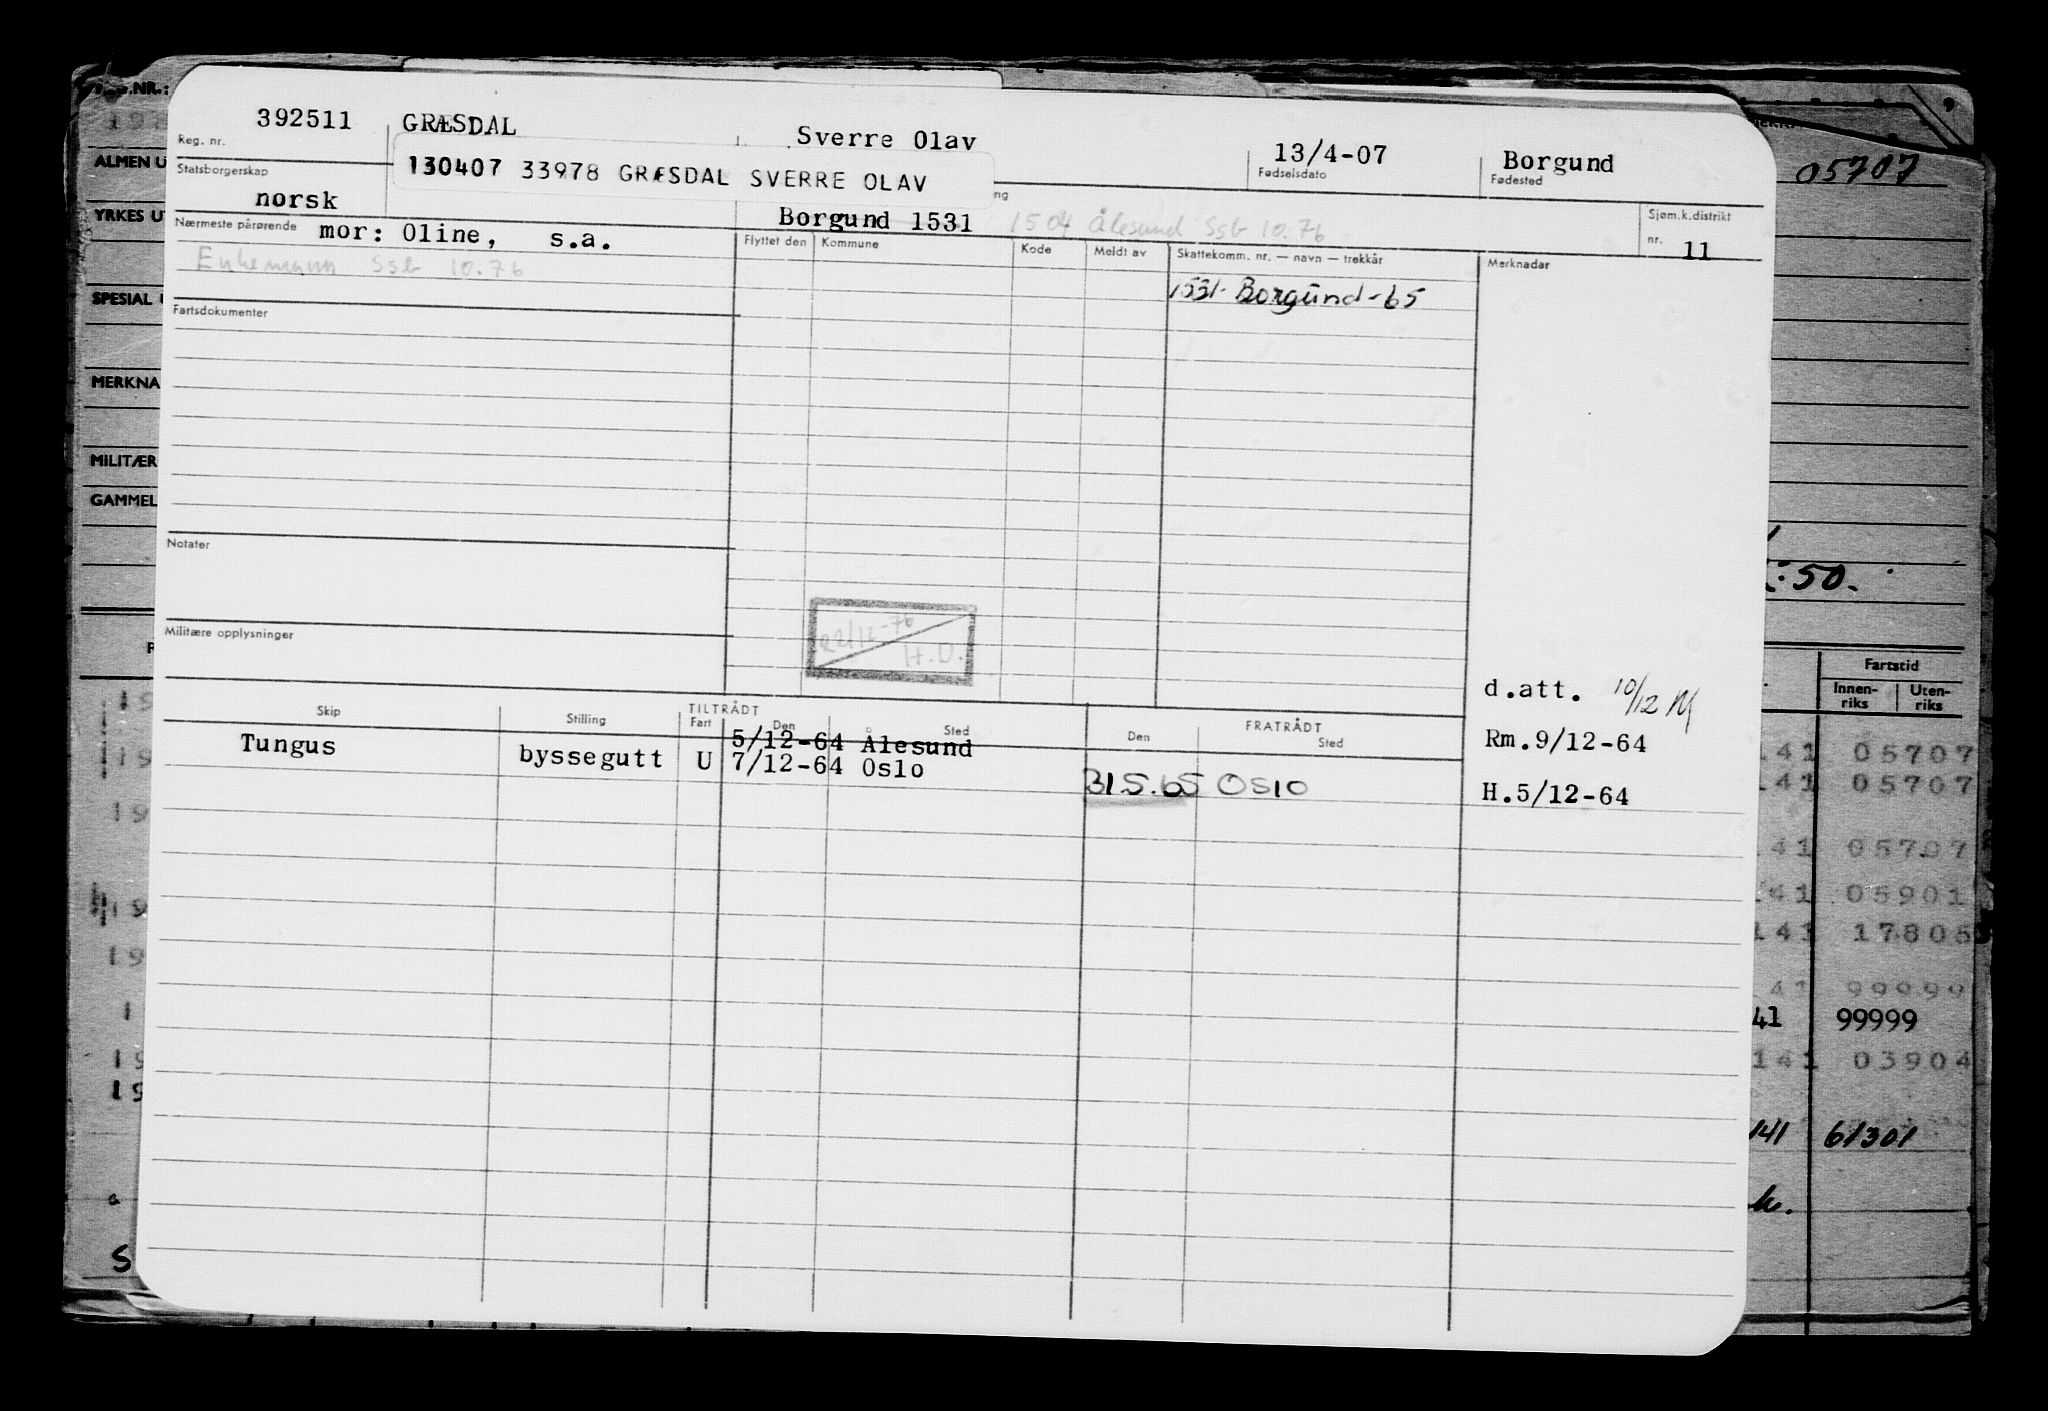 392511 GRÆSDAL Sverre Olav 13/4-07 Borgund
Reg. nr. Fødselsdato Fødested
130407 33978 GRÆSDAL SVERRE OLAV
Statsborgerskap
norsk Borgund 1531 1504 Ålesund Ssb 10.76 Sjøm.k.distrikt
nr. 11
Nærmeste pårørende mor: Oline, s.a.
Enkemann Ssb 10.76
Flyttet den Kommune Kode Meldt av Skattekomm. nr. — navn — trekkår Merknadar
1531 Borgund-65
Fartsdokumenter
Notater
22/12-76
H.D.
Militære opplysninger
d.att. 10/12
Skip Stilling TILTRÅDT Fart Den Sted FRATRÅDT Den Sted
5/12-64 Ålesund Rm.9/12-64
Tungus byssegutt U 7/12-64 Oslo 31.5.65 Oslo H.5/12-64
NR.:
ALMEN U
YRKES U
SPESIAL
MERKNA
MILITÆR
GAMMEL
05707
50.
Fartstid
Innen-riks Uten-riks
141 05707
141 05707
141 05707
141 05901
141 17805
41 99999
41 99999
141 03904
141 61301